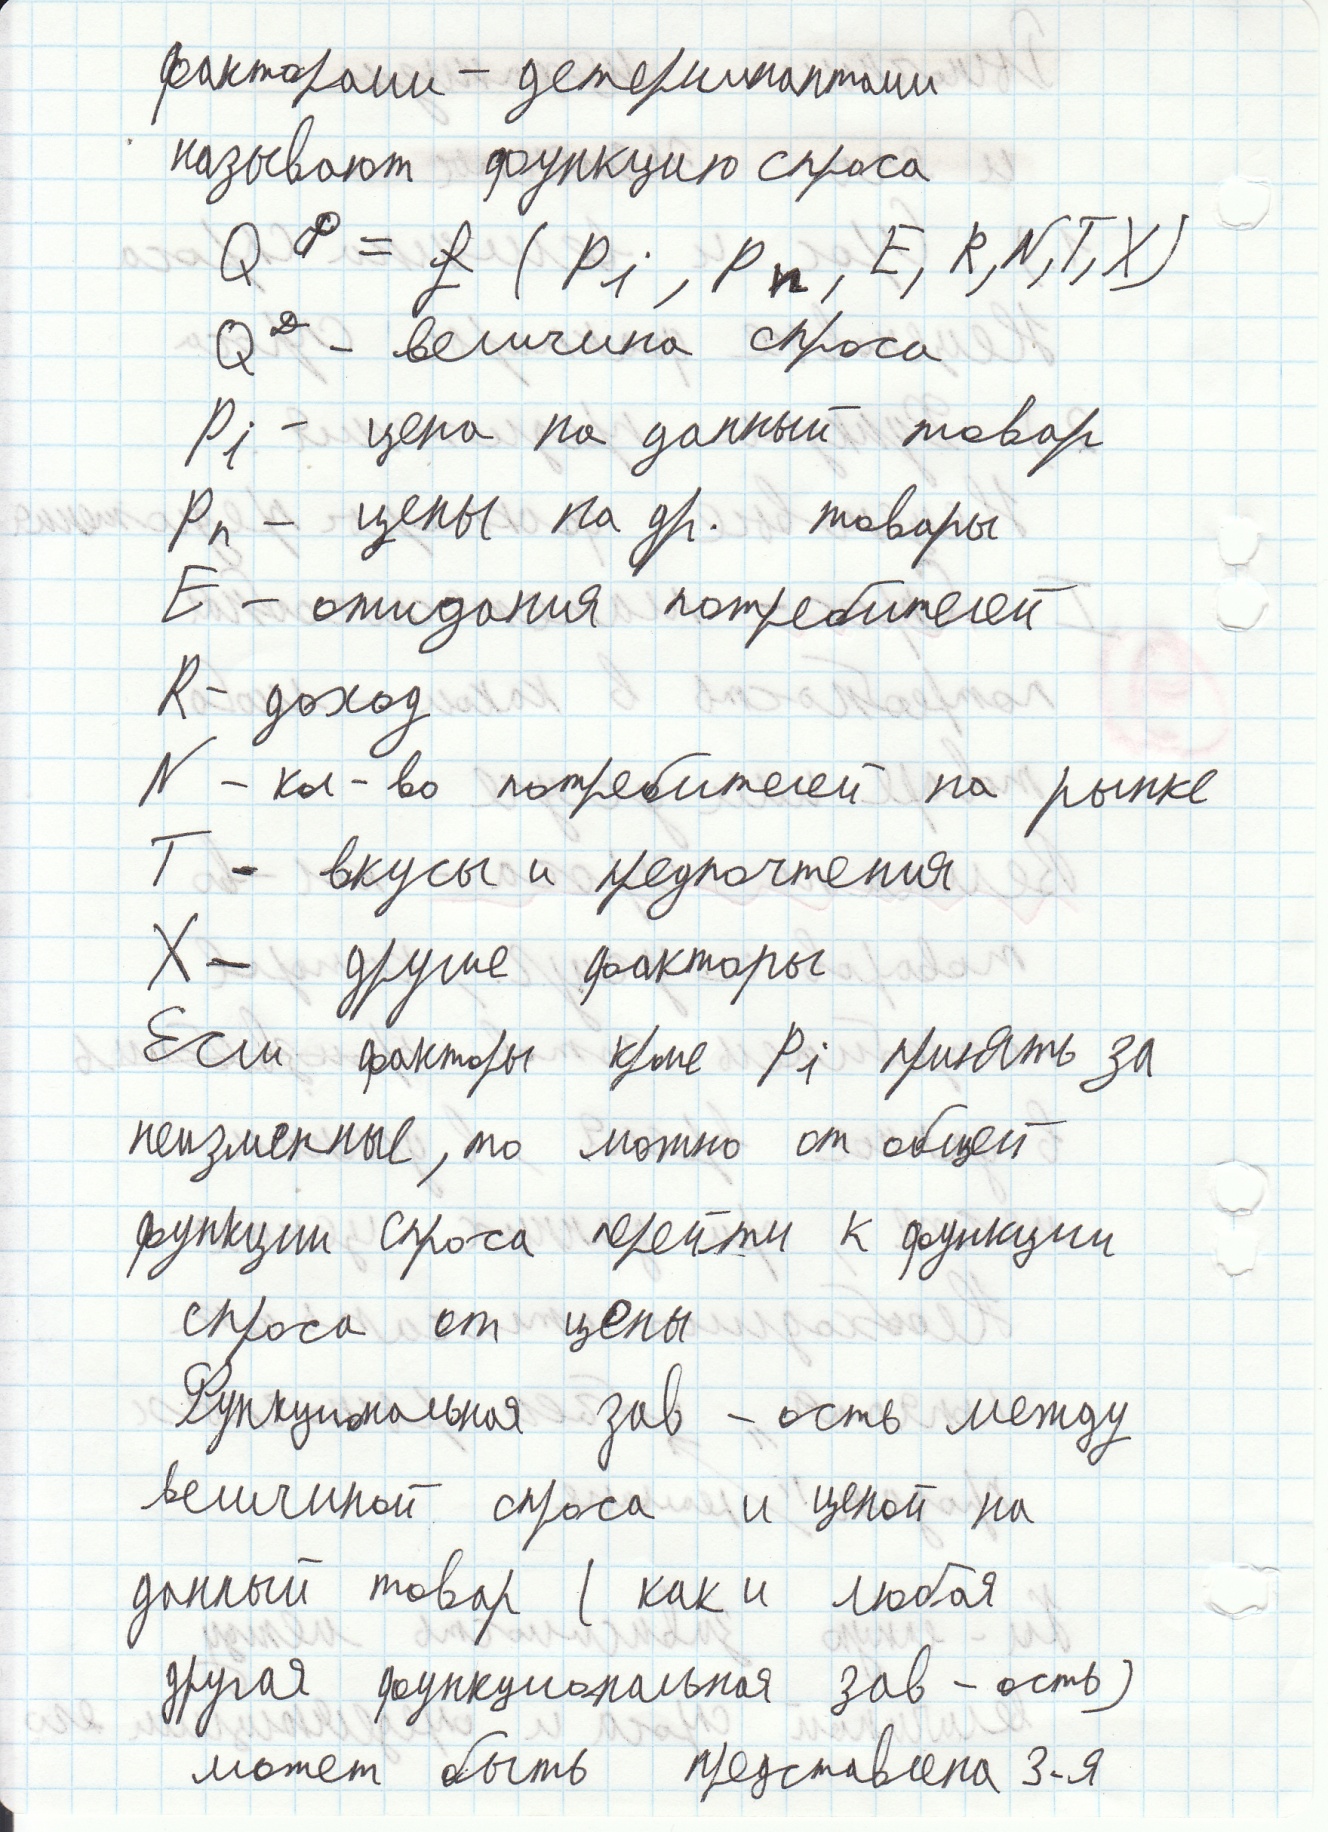 факторами - детерминантами
называют функцию спроса
Q^D = f ( Pi , Pn , E, R, N, T, X)
Q^D - величина спроса
Pi - цена на данный товар
Pn - цены на др. товары
E - ожидания потребителей
R - доход
N - кол-во потребителей на рынке
T - вкусы и предпочтения
X - другие факторы
Если факторы кроме Pi принять за
неизменные, то можно от общей
функции спроса перейти к функции
спроса от цены
Функциональная зав-ость между
величиной спроса и ценой на
данный товар ( как и любая
другая функциональная зав-ость)
может быть представлена 3-я